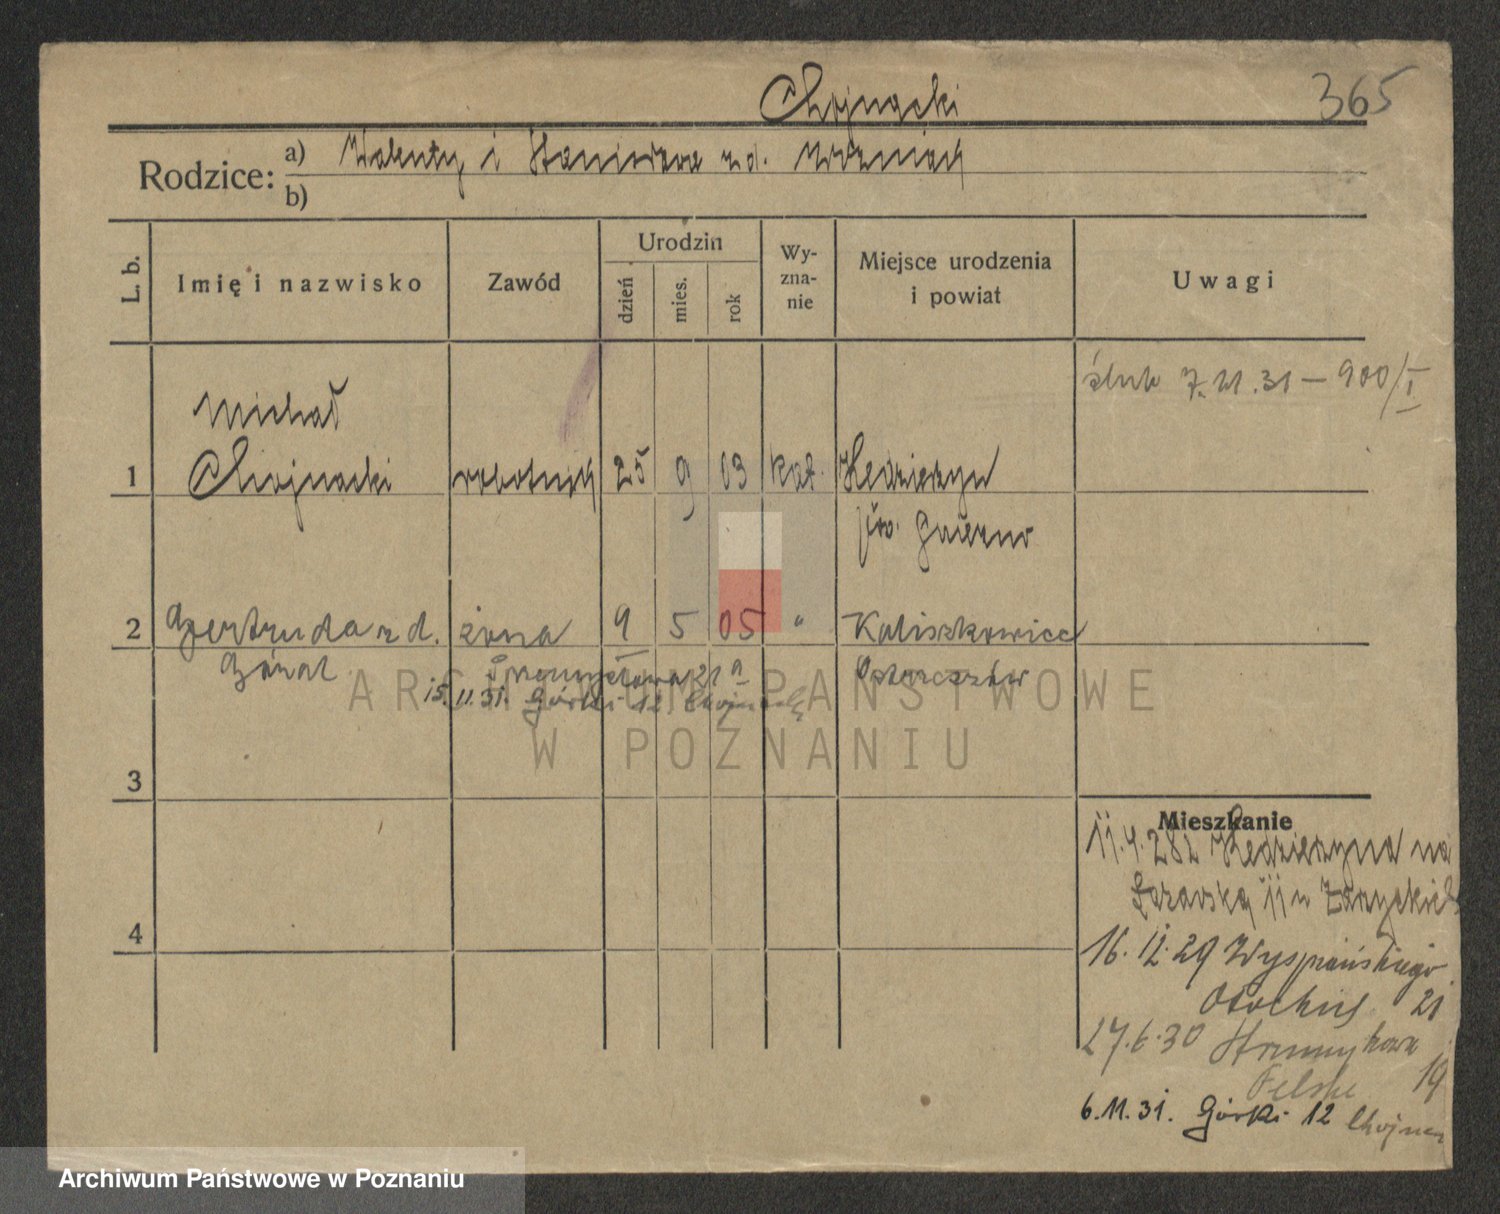 Chojnacki
365
Rodzice: a) Walenty i Stanisława zd. Woźniak
b)
L. b.
Imię i nazwisko
Zawód
Urodzin
dzień
mies.
rok
Wy-
zna-
nie
Miejsce urodzenia
i powiat
Uwagi
ślub 7.11.31 – 900/I
Michał
1 Chojnacki robotnik 25 9 03 kat.
pw. Gniezno
2 Gertruda zd. żona 9 5 05 " Kaliszkowice
Góral
Ostrzeszów
15.11.31. Górki 12. Chojnacki
3
4
Mieszkanie
11.4.28 z na
16.12.29 Wyspiańskiego
21
27.6.30 Strumykowa
19
6.11.31. Górki 12
ARCHIWUM PAŃSTWOWE
W POZNANIU
Archiwum Państwowe w Poznaniu